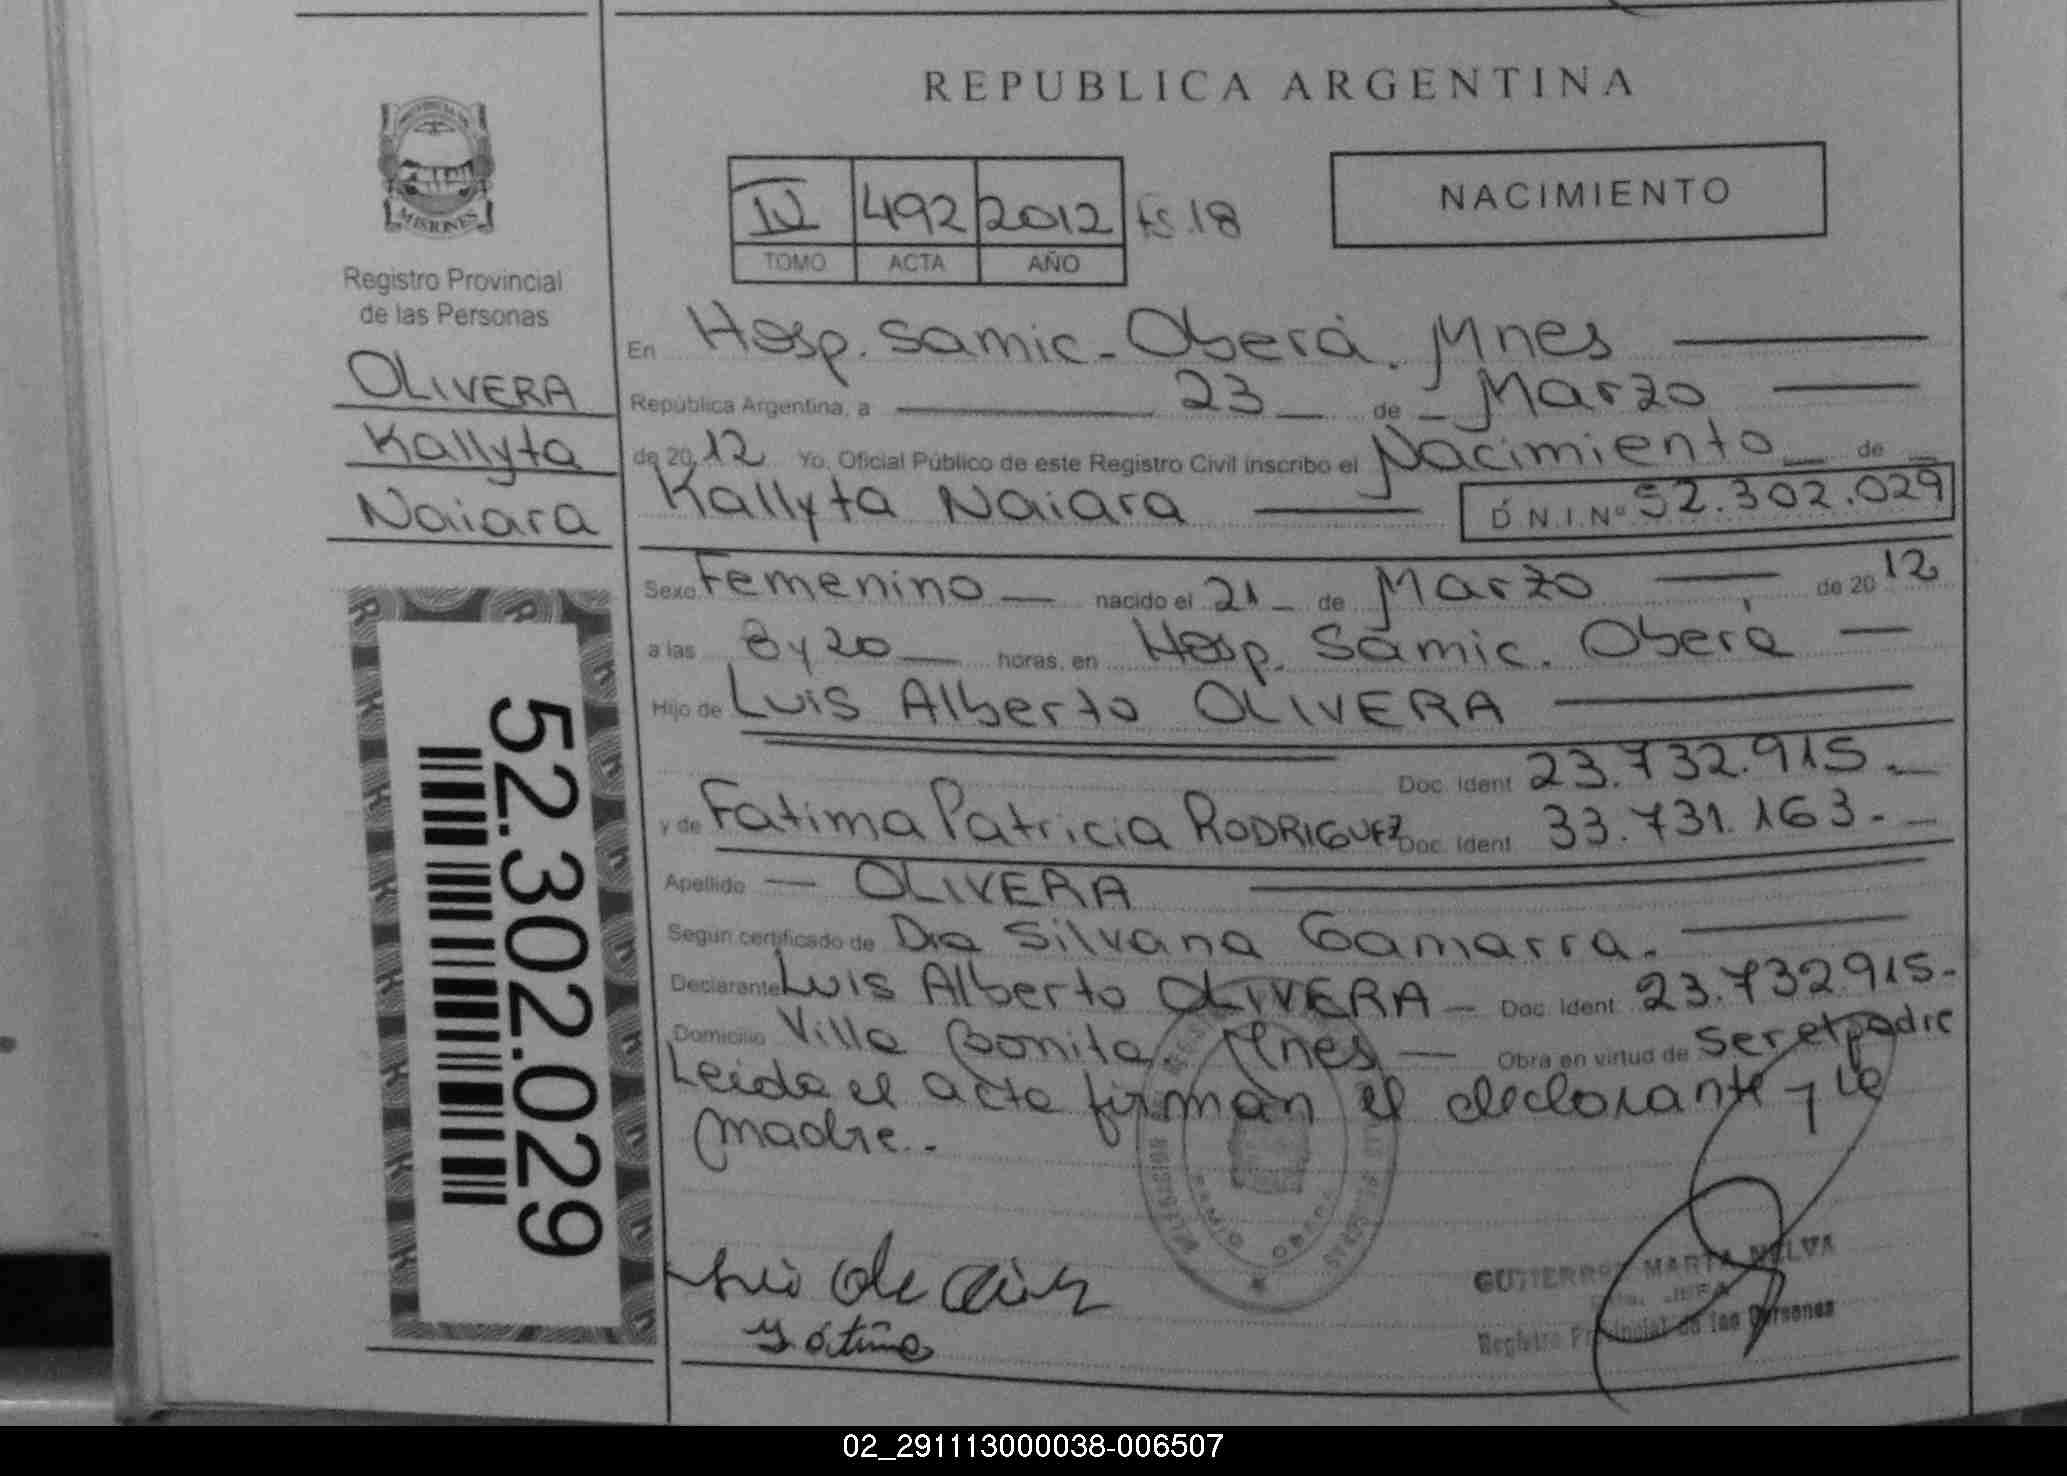 REPUBLICA ARGENTINA
MISIONES
Registro Provincial
de las Personas
OLIVERA
Kallyta
Naiara
52.302.029
IV 492 2012 Fs.18
TOMO ACTA AÑO
NACIMIENTO
En Hosp. Samic - Oberá. Mnes
República Argentina, a 23 de Marzo
de 2012 Yo, Oficial Público de este Registro Civil inscribo el Nacimiento de
Kallyta Naiara D.N.I.Nº 52.302.029
Sexo Femenino nacido el 21 de Marzo de 2012
a las 8 y 20 horas, en Hosp. Samic. Oberá
Hijo de Luis Alberto OLIVERA
Doc. Ident 23.732.915.
y de Fatima Patricia RODRIGUEZ Doc. Ident 33.731.163.-
Apellido OLIVERA
Segun certificado de Dra Silvana Gamarra.
Declarante Luis Alberto OLIVERA - Doc. Ident 23.732.915-
Domicilio Villa Bonita Mnes Obra en virtud de ser el padre
Leida el acta firman el declarante y la
madre.-
GUTIERREZ MARTA NELVA
JEFA
Registro Provincial de las Personas
02_291113000038-006507